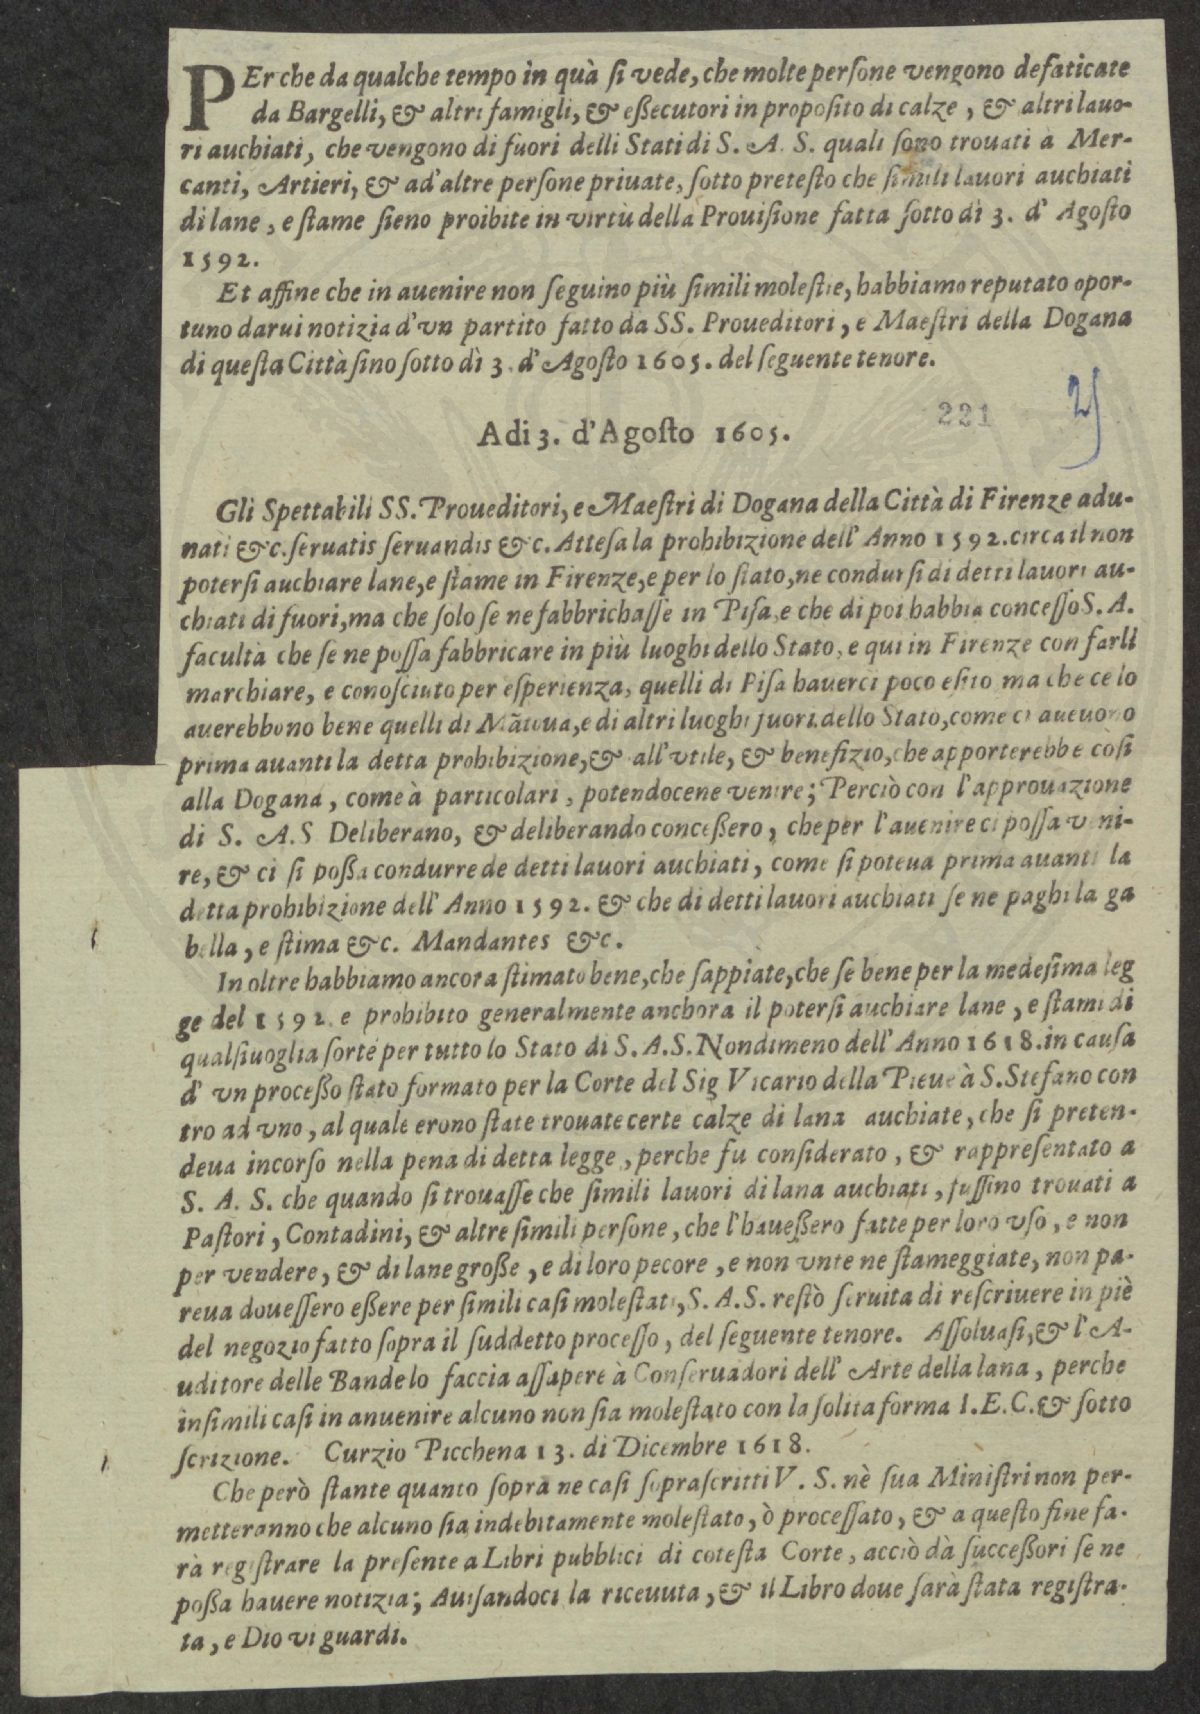 PEr che da qualche tempo in quà si vede, che molte persone vengono defaticate
da Bargelli, & altri famigli, & eßecutori in proposito di calze, & altri lauo-
ri auchiati, che vengono di fuori delli Stati di S. A. S. quali sono trouati a Mer-
canti, Artieri, & ad'altre persone priuate, sotto pretesto che simili lauori auchiati
di lane, e stame sieno proibite in virtù della Prouisione fatta sotto dì 3. d'Agosto
1592.
Et affine che in auenire non seguino più simili molestie, habbiamo reputato opor-
tuno darui notizia d'vn partito fatto da SS. Proueditori, e Maestri della Dogana
di questa Città sino sotto dì 3. d'Agosto 1605. del seguente tenore.
221
25
Adi 3. d'Agosto 1605.
Gli Spettabili SS. Proueditori, e Maestri di Dogana della Città di Firenze adu-
nati &c. seruatis seruandis &c. Attesa la prohibizione dell'Anno 1592. circa il non
potersi auchiare lane, e stame in Firenze, e per lo stato, ne condursi di detti lauori au-
chiati di fuori, ma che solo se ne fabbrichasse in Pisa, e che di poi habbia concesso S. A.
facultà che se ne possa fabbricare in più luoghi dello Stato, e qui in Firenze con farli
marchiare, e conosciuto per esperienza, quelli di Pisa hauerci poco esito ma che ce lo
auerebbono bene quelli di Mãtoua, e di altri luoghi fuori dello Stato, come ci aueuono
prima auanti la detta prohibizione, & all'vtile, & benefizio, che apporterebbe còsi
alla Dogana, come à particolari, potendocene venire; Perciò con l'approuazione
di S. A. S Deliberano, & deliberando conceßero, che per l'auenire ci possa veni-
re, & ci si poßa condurre de detti lauori auchiati, come si poteua prima auanti la
detta prohibizione dell'Anno 1592. & che di detti lauori auchiati se ne paghi la ga
bella, e stima &c. Mandantes &c.
In oltre habbiamo ancora stimato bene, che sappiate, che se bene per la medesima leg
ge del 1592. e prohibito generalmente anchora il potersi auchiare lane, e stami di
qualsiuoglia sorte per tutto lo Stato di S. A. S. Nondimeno dell'Anno 1618. in causa
d' vn proceßo stato formato per la Corte del Sig Vicario della Pieue à S. Stefano con
tro ad vno, al quale erono state trouate certe calze di lana auchiate, che si preten-
deua incorso nella pena di detta legge, perche fu considerato, & rappresentato a
S. A. S. che quando si trouasse che simili lauori di lana auchiati, fussino trouati a
Pastori, Contadini, & altre simili persone, che l'haueßero fatte per loro vso, e non
per vendere, & di lane große, e di loro pecore, e non vnte ne stameggiate, non pa-
reua douessero eßere per simili casi molestati, S. A. S. restò seruita di rescriuere in piè
del negozio fatto sopra il suddetto processo, del seguente tenore. Assoluasi, & l'A-
uditore delle Bande lo faccia assapere à Conseruadori dell' Arte della lana, perche
in simili casi in anuenire alcuno non sia molestato con la solita forma I. E. C. & sotto
scrizione. Curzio Picchena 13. di Dicembre 1618.
Che però stante quanto sopra ne casi soprascritti V. S. nè sua Ministri non per-
metteranno che alcuno sia indebitamente molestato, ò processato, & a questo fine fa-
rà registrare la presente a Libri pubblici di cotesta Corte, acciò dà succeßori se ne
poßa hauere notizia; Auisandoci la riceuuta, & il Libro doue sarà stata registra-
ta, e Dio vi guardi.